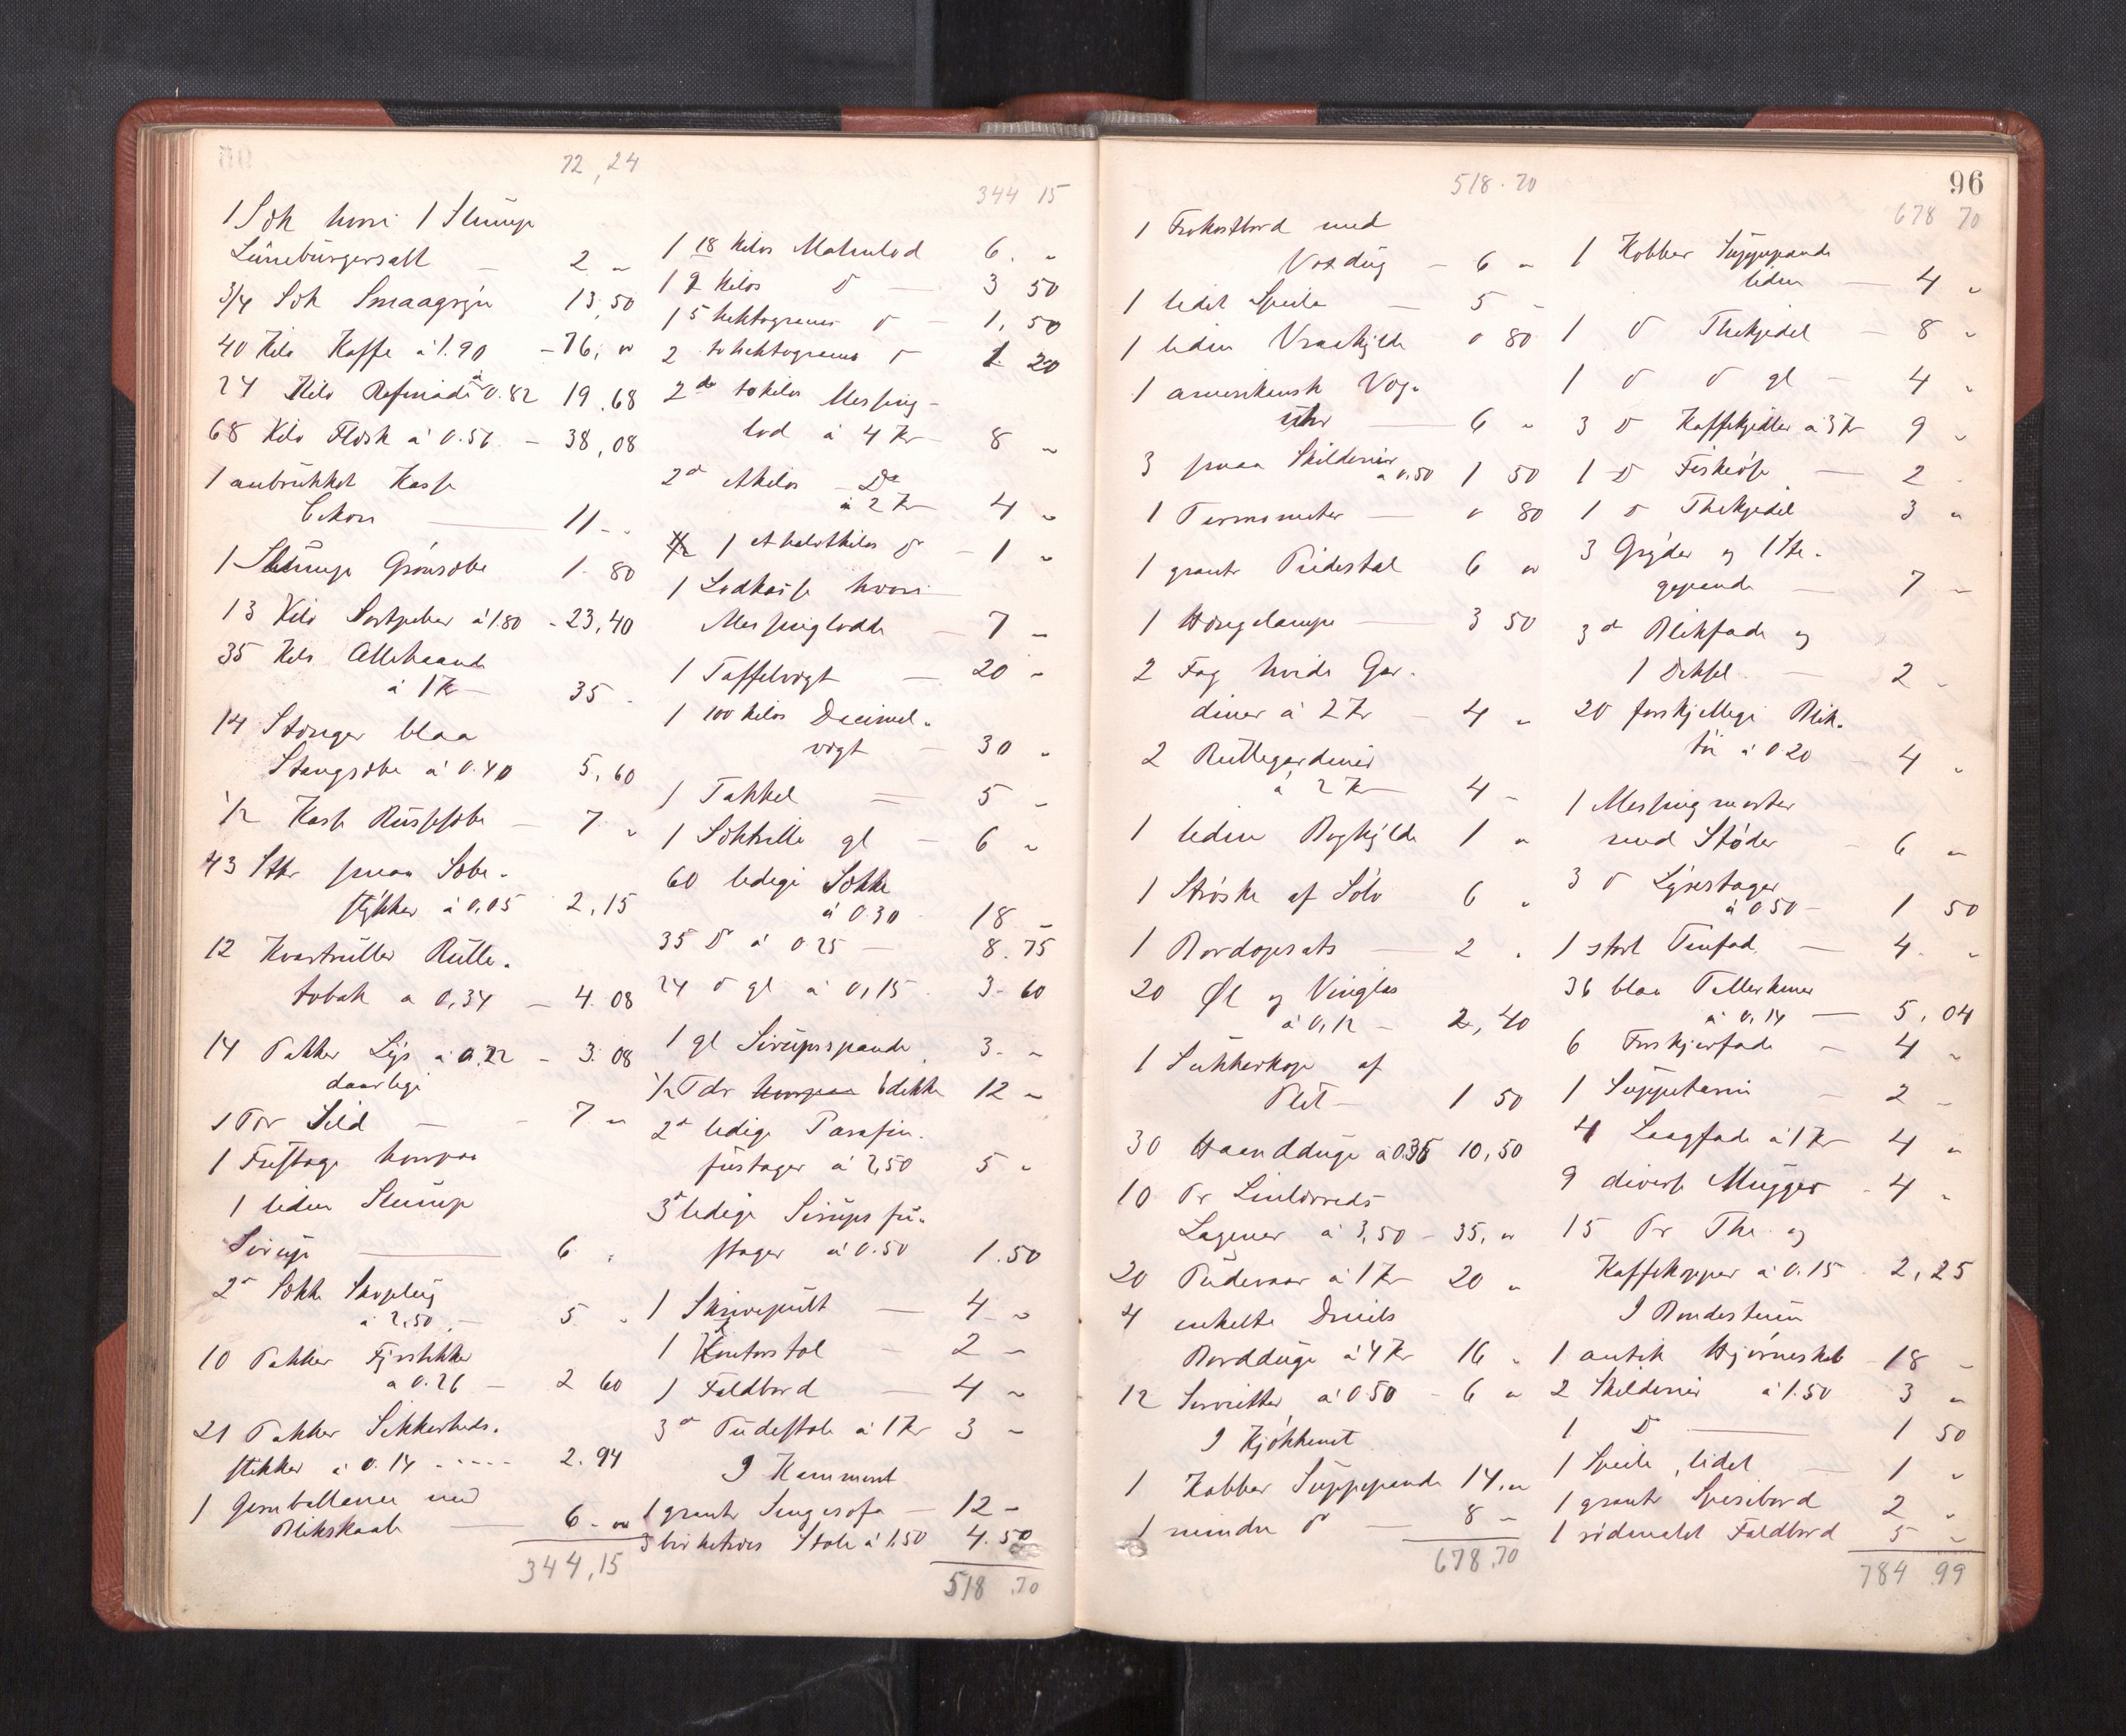 72,24
1 Sæk hvori 1 Slump
Lüneburgersalt — 2 „
3/4 Sæk Smaagryn 13,50
40 Kilo Kaffe à 1.90 – 76, „
24 Kilo Refinade à 0.82 19,68
68 Kilo Flæsk à 0.56 – 38,08
1 anbrukket Kasse
Cikori — 11 –
1 Slump Grønsæbe 1. 80
13 Kilo Sortpeber à 1.80 – 23,40
35 Kilo Allehaande
à 1 Kr – 35 –
14 Stænger blaa
Stangsæbe à 0.40 5,60
1/2 Kasse Russesæbe – 7. „
43 Stkr smaa Sæbe-
stykker à 0,05 2,15
12 Kvartruller Rulle-
tobak a 0,34 – 4.08
14 Pakker Lys à 0,22 – 3.08
daarlige
1 Tdr Sild — 7 „
1 Fustage hvorpaa
1 liden Slump
Sirup — 6 „
2 d Sække Skoplug
à 2,50 – 5 „
10 Pakker Fyrstikker
a 0.26 — 2 60
21 Pakker Sikkerheds-
stikker à 0.14 ..... 2.94
1 Gemballance med
Blikskaal — 6 – „
344,15
344 15
1 18 Kilos Malmlod 6. „
1 2 Kilos d — 3 50
1 5 hektograms d – 1,50
2 to hektograms d 1. 20
2 de tokilos Messing-
lod à 4 Kr – 8 „
2 d etkilos – Do
à 2 Kr 4 „
1 et halvtkilos d – 1 „
1 Lodkasse hvori
Messinglodde – 7 „
1 Taffelvægt — 20 „
1 100 kilos Decimal-
vægt – 30 „
1 Takkel = 5 „
1 Sæktrille gl – 6 „
60 ledige Sække
à 0.30 18 „
35 D à 0 25 — 8.75
24 d gl à 0,15 3. 60
1 gl Sirupsspande 3. „
1/2 Tdr hvorpaa 12 „
2 d ledige Parafin-
fustager à 2,50 5 „
3 d ledige Sirupsfu-
stager à 0.50 1.50
1 Skrivepult — 4 „
1 Kontorstol – 2 „
1 Faldbord – 4 „
3 d Pudestole à 1 Kr 3 „
I Kammeret
1 grønt Sengesofa – 12 –
3 birketræs Stole à 1,50 4.50
518.70
96
518.70
1 Frokostbord med
Voxdug – 6 „
1 lidet Speile — 5 „
1 liden „ 80
1 amerikansk Væg-
uhr — 6 „
3 smaa Skilderier
a 0,50 1 50
1 Termometer — „ 80
1 grønt Pidestal 6 „
1 Hængelampe — 3 50
2 Fag hvide Gar-
diner à 2 Kr – 4 „
2 Rullegardiner
à 2 Kr – 4 „
1 liden Boghylde 1 „
1 Strøske af Sølv 6 „
1 Bordopsats — 2 „
20 Øl og Vinglas
à 0,12 – 2,40
1 Sukkerkop af
Plet – 1 50
30 Haandduge à 0.35 10,50
10 Pr Linlærreds
Lagener à 3,50 – 35, „
20 Pudevaar à 1 Kr 20 „
4 enkelte Dreils
Bordduge à 4 Kr 16 „
12 Servietter à 0 50 – 6 „
I Kjøkkenet
1 Kobber Suppepande 14, „
1 mindre d — 8 „
678,70
678 70
1 Kobber Suppepande
liden — 4 „
1 d Thekjedel — 8 „
1 d d gl – 4 „
3 d Kaffekjedler à 3 Kr 9 „
1 D Fiskeøse — 2 „
1 d Thekjedel 3 „
3 Gryder og 1 Ste-
gepande — 7 „
3 d Blikfade og
1 Deksel – 2 „
20 forskjellige Blik-
tøi à 0.20 – 4 „
1 Messingmorter
med Støder – 6 „
3 d Lysestager
à 0 50 – 1 50
1 stort Tinfad — 4. „
36 blaa Tallerkener
à 0,14 — 5,04
6 Forskjærfade – 4 „
1 Suppeterrin – 2 „
4 Laagfade à 1 Kr 4 „
9 diverse Mugger – 4 „
15 Pr The og
Kaffekopper à 0.15 2,25
I Bondestuen
1 antik Hjørneskab – 18 „
2 Skilderier à 1.50 3 „
1 D — 1 50
1 Speile, lidet — 1 „
1 grønt Spisebord 2 „
1 rødmalet Faldbord 5 „
784.99